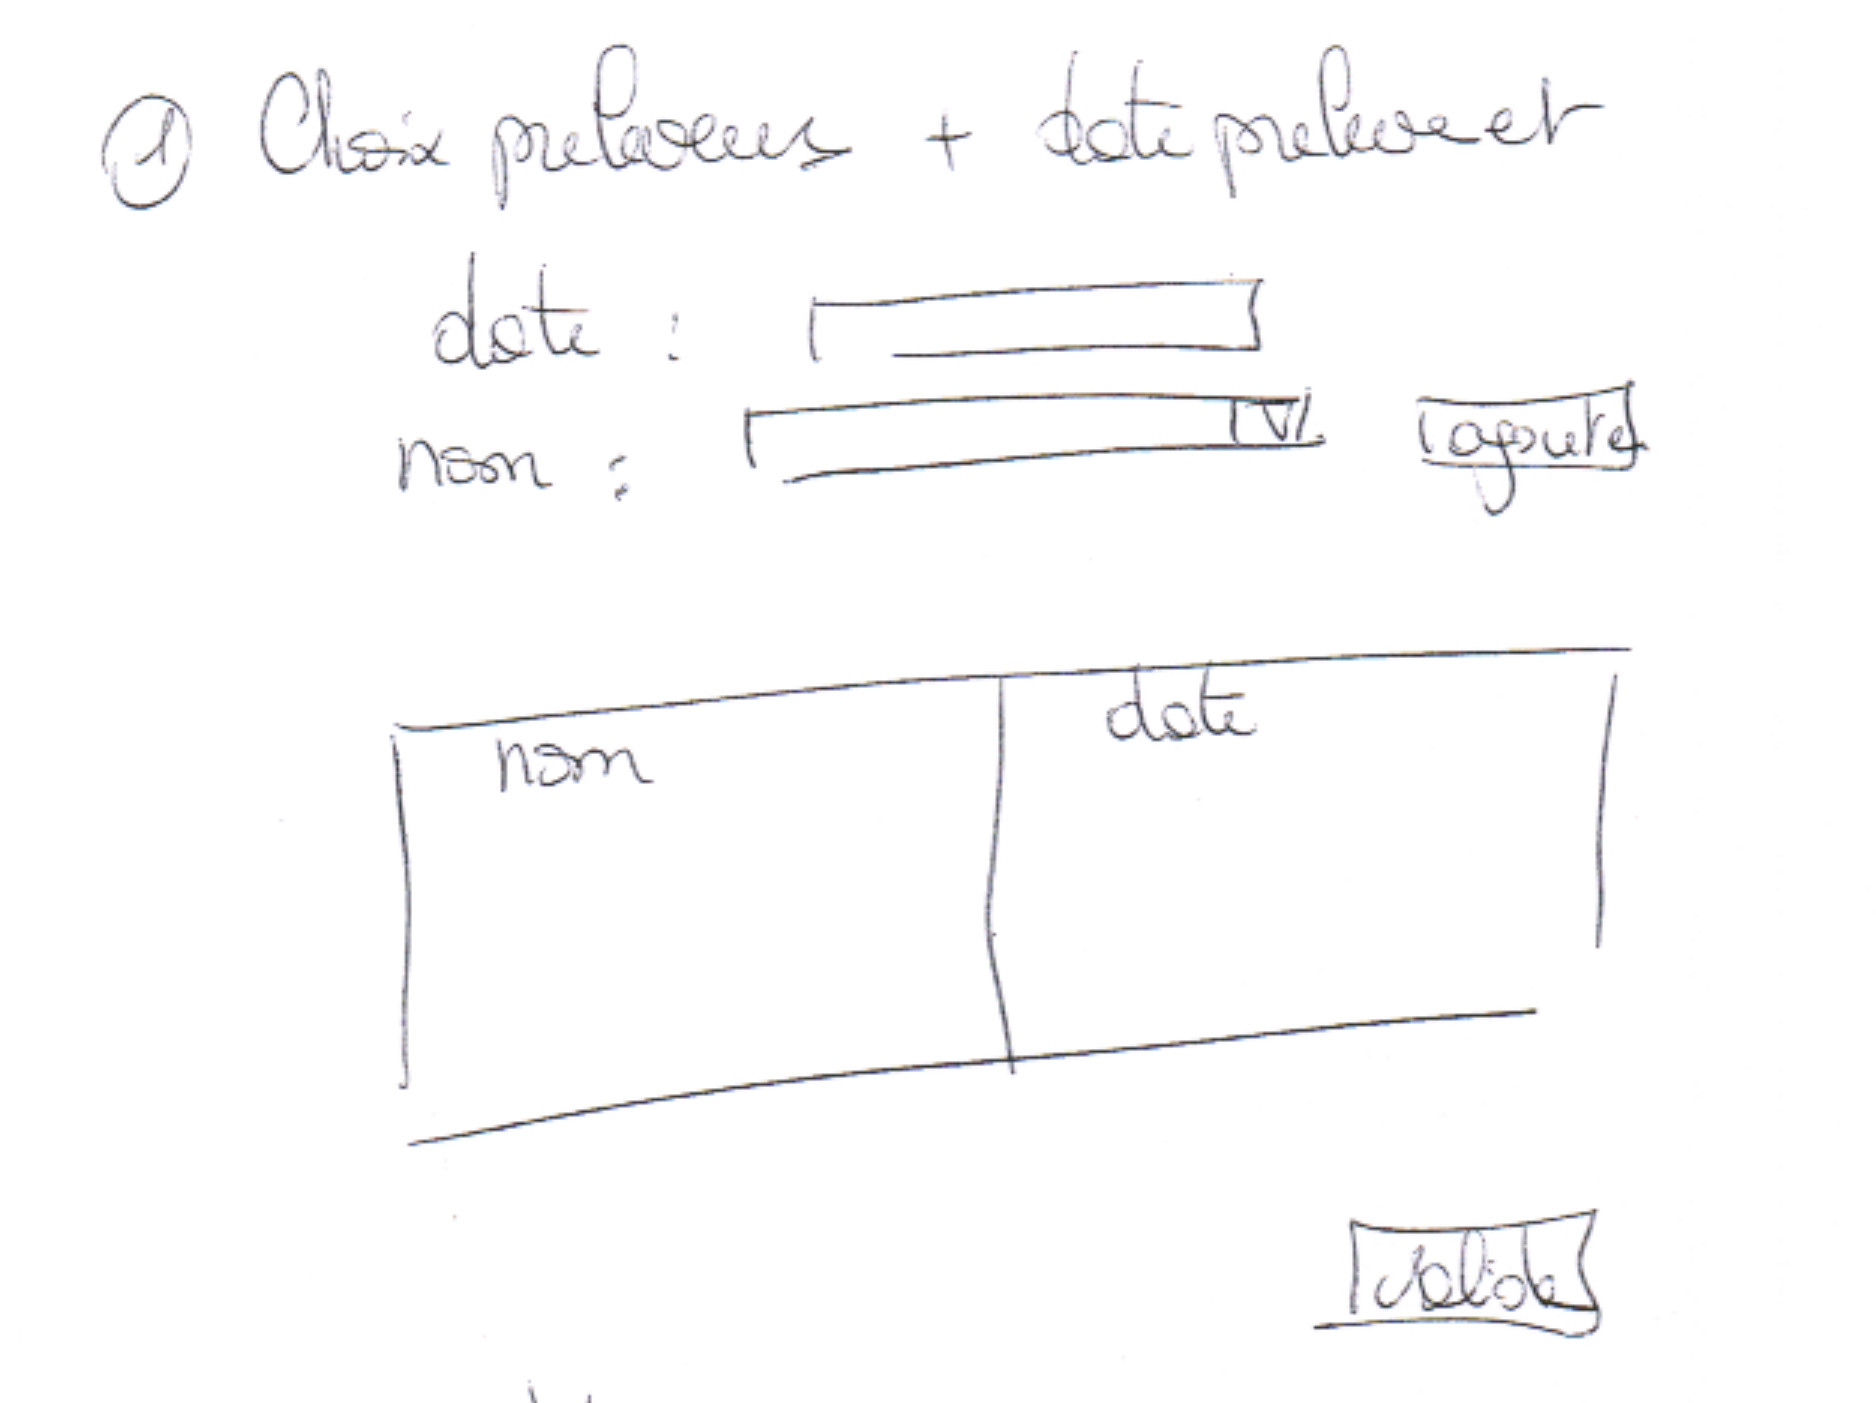 1 Choix preleveurs + date prelevet
date :
nom : ajouter
nom date
valider